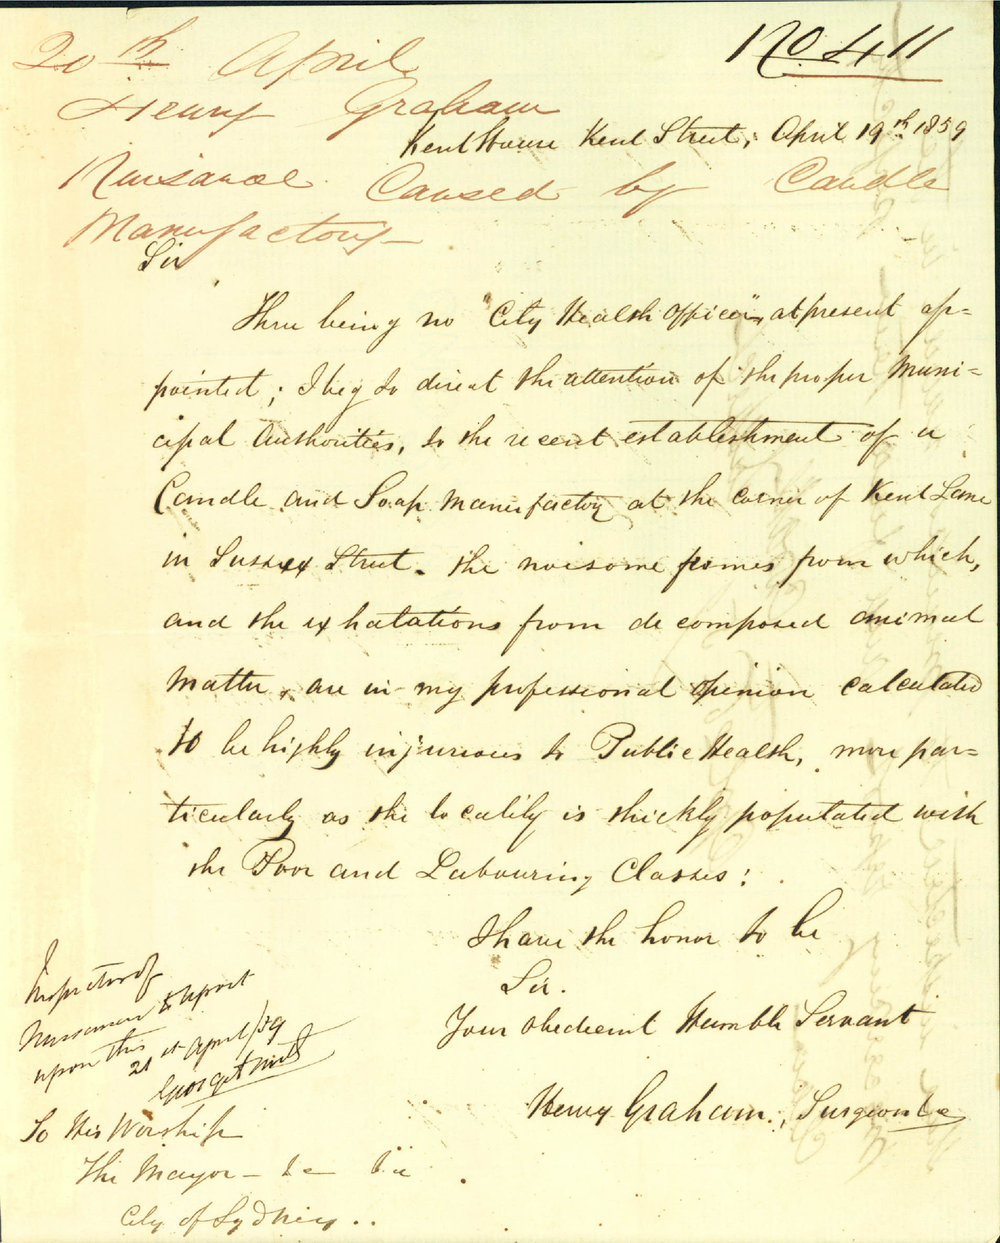 No 411
20th April
Henry Graham
Nuisance Caused by Candle
Manufactory
Kent House Kent Street, April 19th 1859
Sir
There being no "City Health Officer", at present ap=
pointed; I beg to direct the attention of the proper Muni=
cipal Authorities, to the recent establishment of a
Candle and Soap Manufactory at the corner of Kent Lane
in Sussex Street. the noisome fumes from which,
and the exhalations from decomposed animal
matter, are in my professional opinion calculated
to be highly injurious to Public Health, more par=
ticularly as the locality is thickly populated with
the Poor and Labouring Classes:
I have the honor to be
Sir.
Your Obedient Humble Servant
Henry Graham, Surgeon &c
Inspector of
Nuisances to report
upon this
21st April/59
To His Worship
The Mayor - &c &c
City of Sydney..